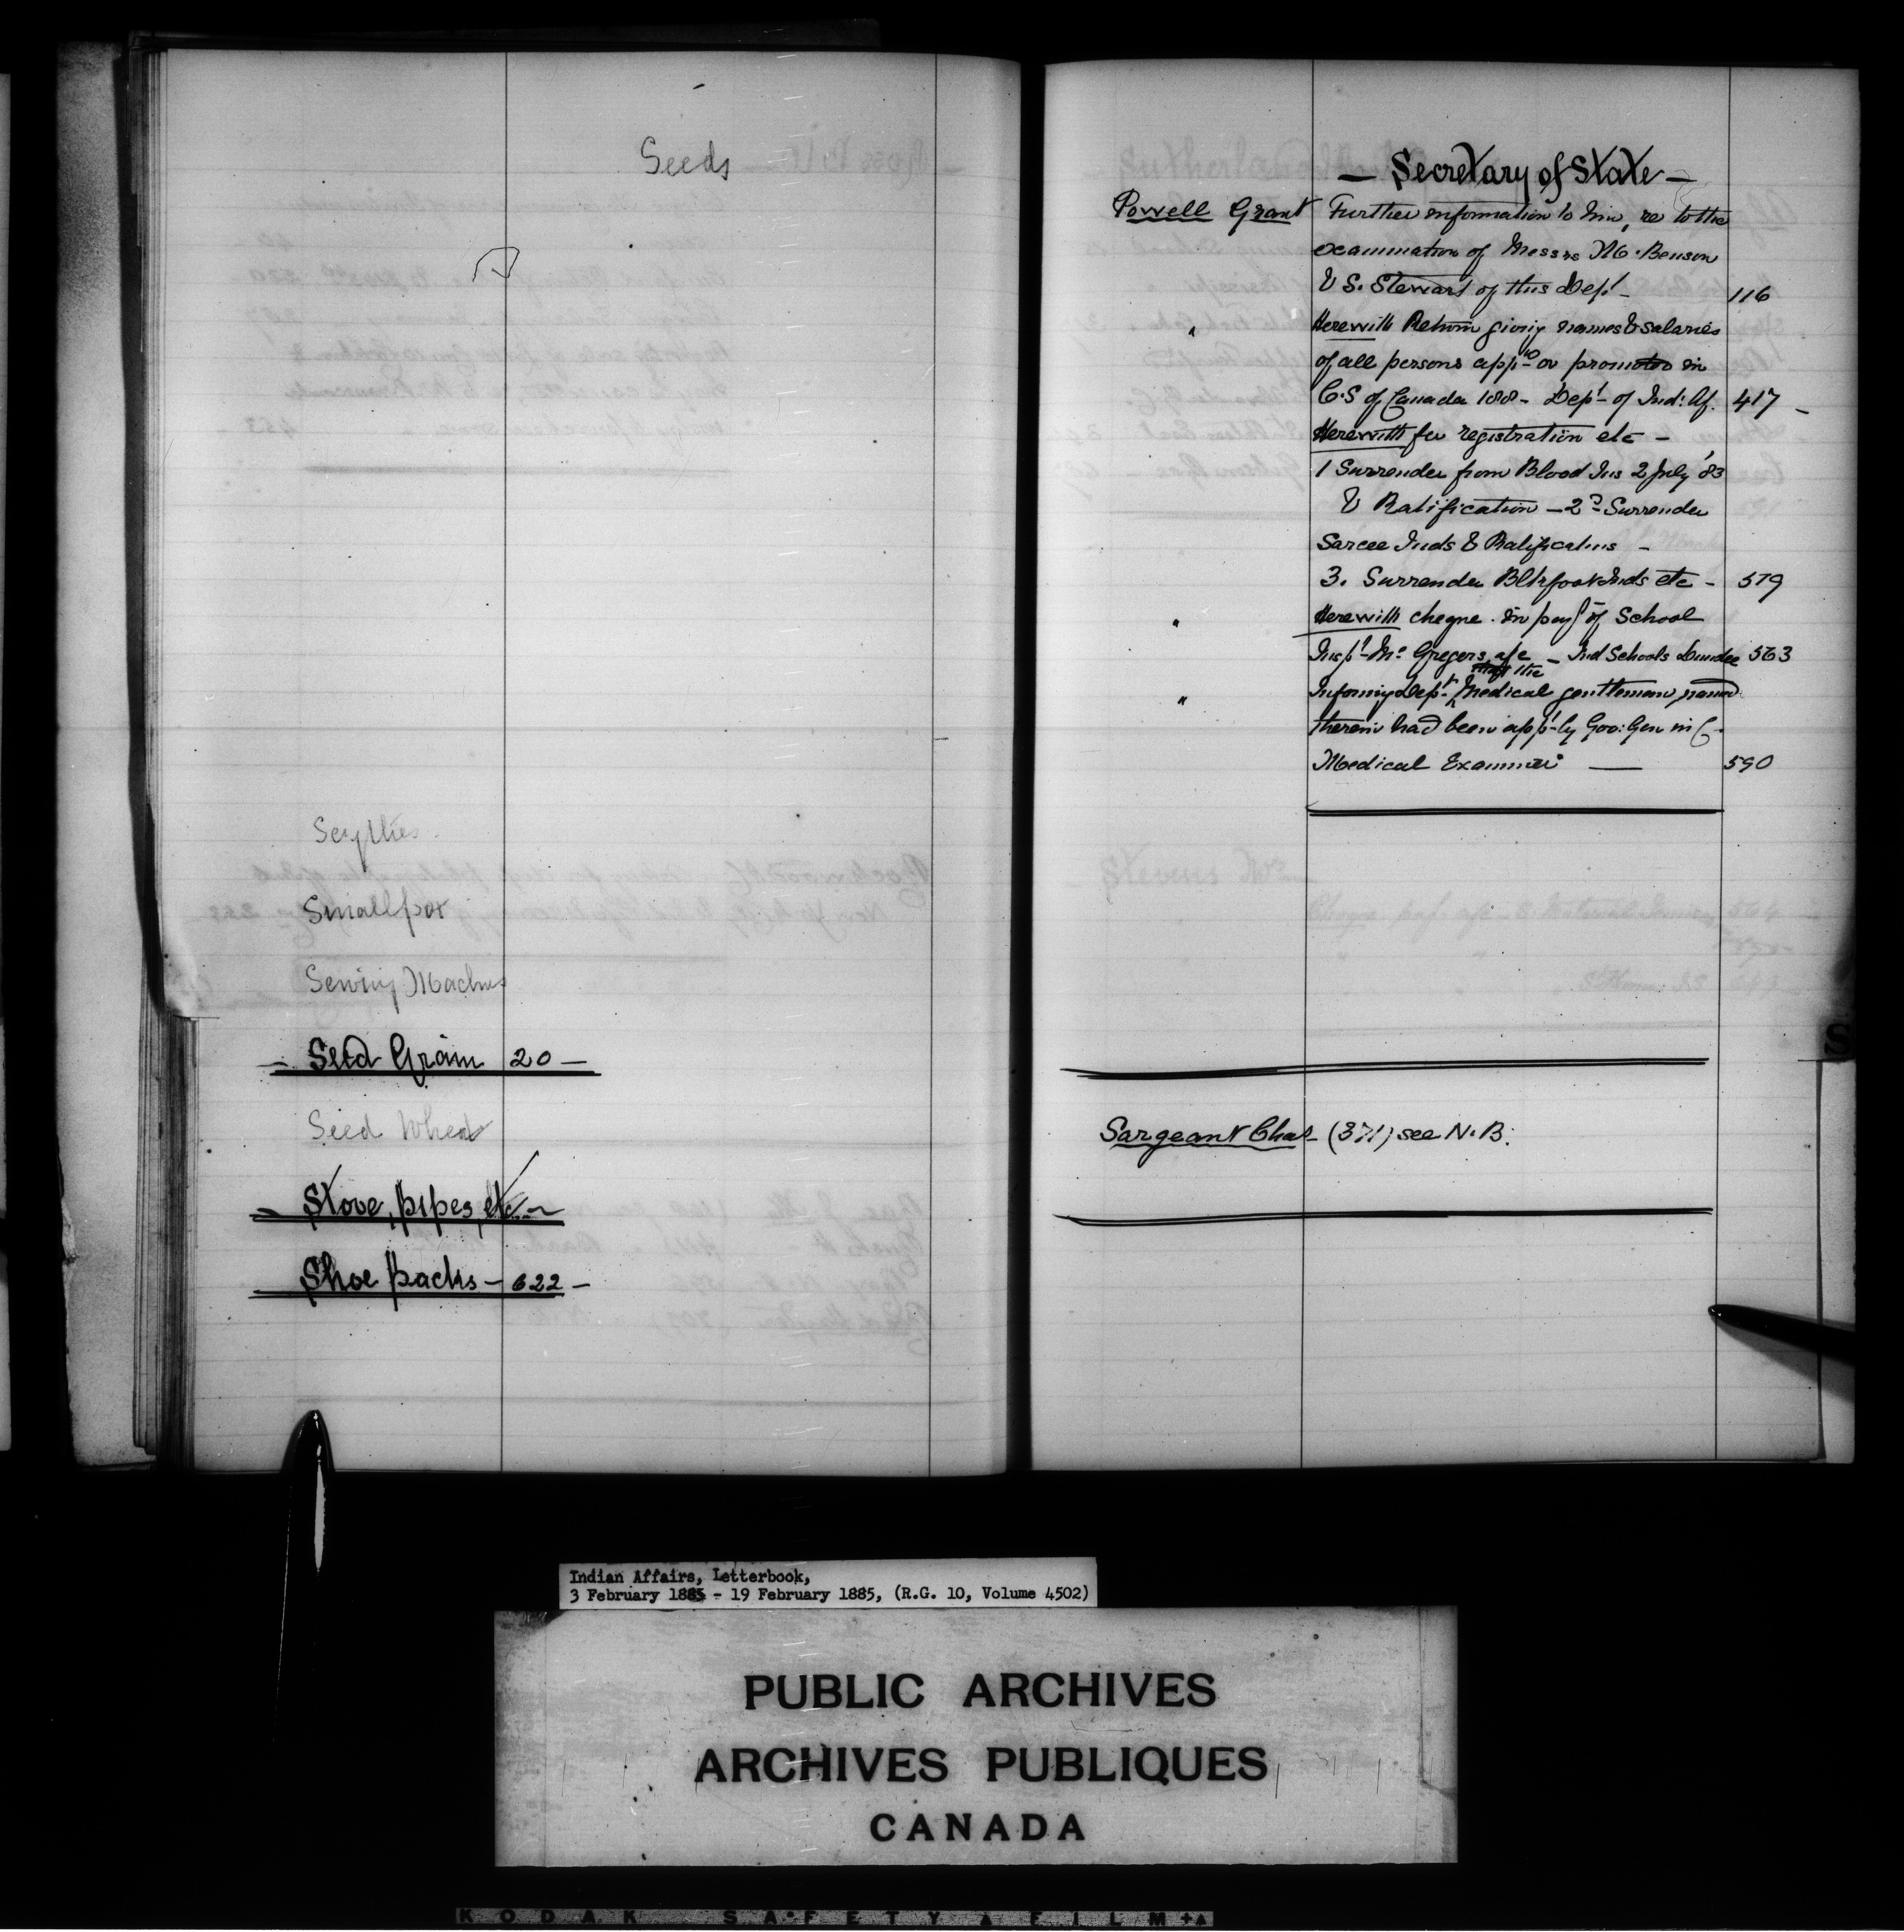 Seeds
Scythes
Smallpox
Sewing Machines
— Seed Grain 20 —
Seed Wheat
— Stove, pipes, etc. —
Shoe packs — 622 —
— Secretary of State —
Powell Grant Further information to him, re to the
examination of Messrs M. Benson
& S. Stewart of this Dept — 116
" Herewith Return giving names & salaries
of all persons app'td or promoted in
C.S of Canada 188 - Dept of Ind: Af. 417 —
Herewith for registration etc —
1 Surrender from Blood Ins 2 July '83
& Ratification — 2nd Surrender
Sarcee Inds & Ratifications —
3. Surrender Blkfoot Inds etc — 579
" Herewith cheque in payt of School
Inspt McGregors a/c — Ind Schools Dundee 563
that the
" Informing Dept Medical gentleman named
therein had been appt by Gov: Gen in C.
Medical Examiner — 590
Sargeant Chas (371) see N.B.
S
Stevens
Indian Affairs, Letterbook,
3 February 1885 - 19 February 1885, (R.G. 10, Volume 4502)
PUBLIC ARCHIVES
ARCHIVES PUBLIQUES
CANADA
KODAK SAFETY FILM